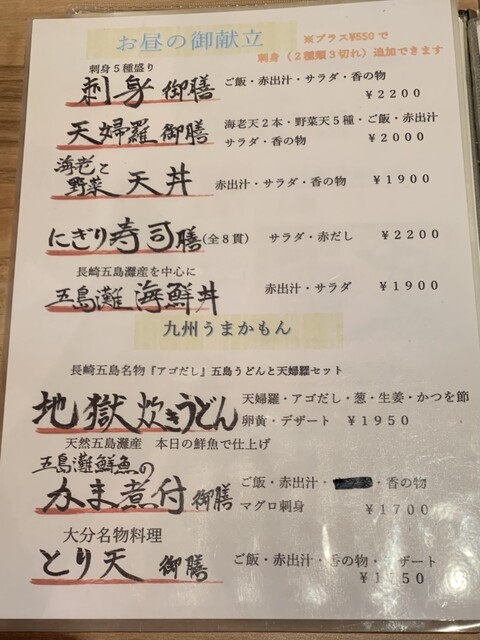 お昼の御献立
※プラス¥550で
刺身（2種類3切れ）追加できます
刺身5種盛り
刺身御膳 ご飯・赤出汁・サラダ・香の物
¥2200
天婦羅御膳 海老天2本・野菜天5種・ご飯・赤出汁
サラダ・香の物 ¥2000
海老と
野菜 天丼 赤出汁・サラダ・香の物 ¥1900
にぎり寿司膳(全8貫) サラダ・赤だし ¥2200
長崎五島灘産を中心に
五島灘 海鮮丼 赤出汁・サラダ ¥1900
九州うまかもん
長崎五島名物『アゴだし』五島うどんと天婦羅セット
地獄炊きうどん 天婦羅・アゴだし・葱・生姜・かつを節
卵黄・デザート ¥1950
天然五島灘産 本日の鮮魚で仕上げ
五島灘鮮魚の
かま煮付御膳 ご飯・赤出汁・ ・香の物
マグロ刺身 ¥1700
大分名物料理
とり天 御膳 ご飯・赤出汁・香の物・デザート